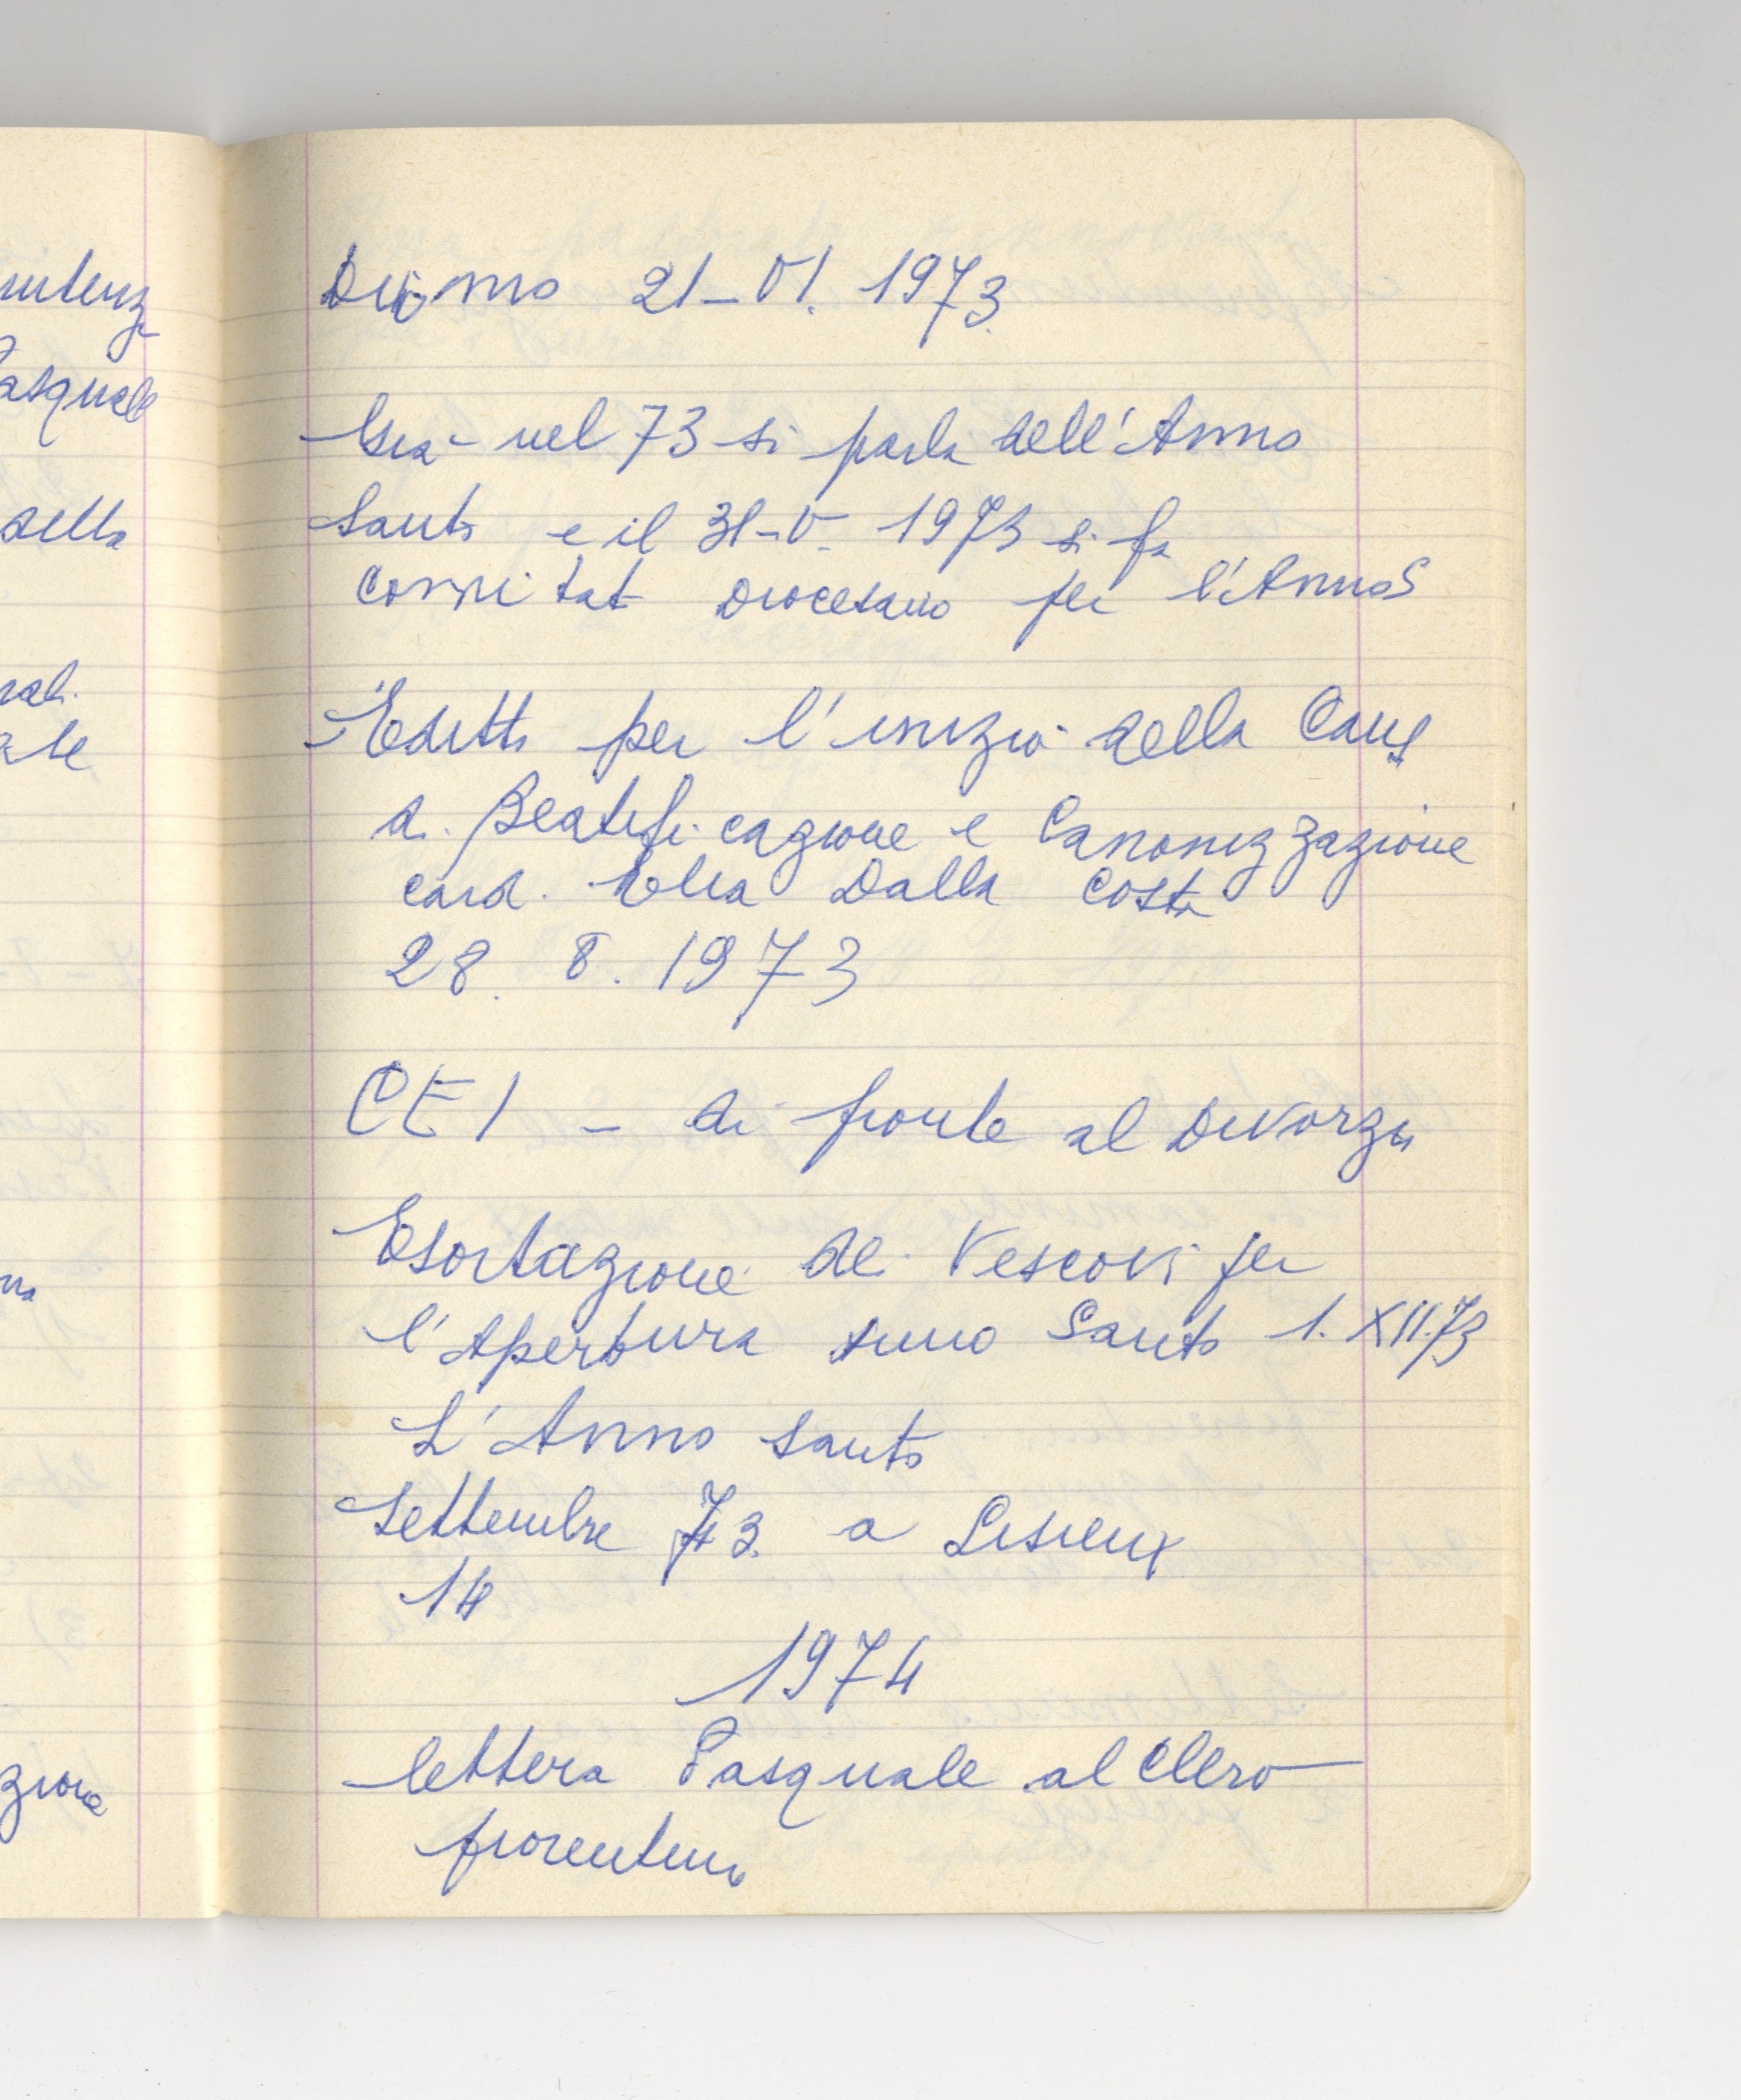 Duomo 21-VI. 1973.
Già nel 73 si parla dell'Anno
Santo e il 31-V. 1973 si fa
Comitat Diocesano per l'Anno S
Editto per l'inizio della Caus
di Beatificazione e Canonizzazione
card. Elia Dalla Costa
28. 8. 1973
CEI - di fronte al Divorzio
Esortazione dei Vescovi per
l'Apertura Anno Santo 1. XII.73
L'Anno Santo
Settembre 73. a Lisieux
14
1974
lettera Pasquale al Clero
fiorentino
asquale
della
ale
zione